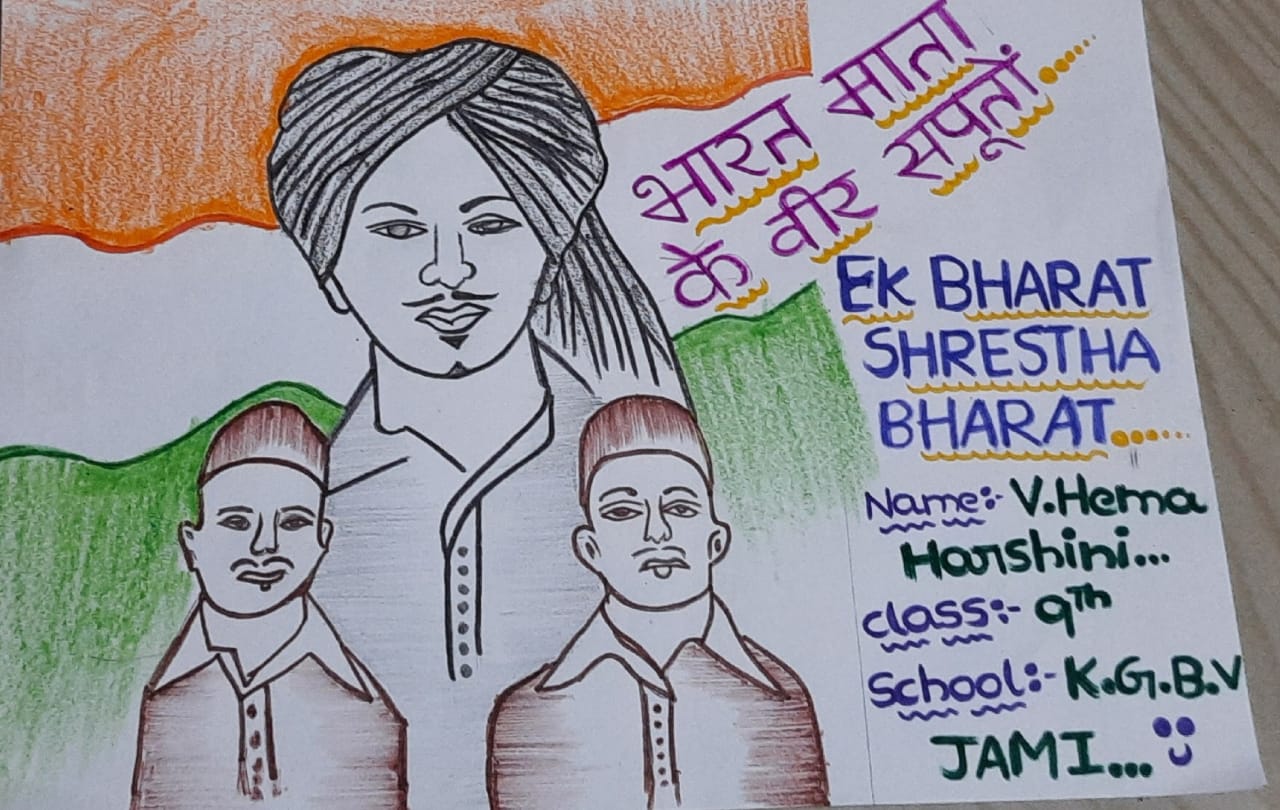 भारत माता
के वीर सपूतों.....
EK BHARAT
SHRESTHA
BHARAT......
Name:- V.Hema
Harshini...
class:- 9Th
School:- K.G.B.V
JAMI...